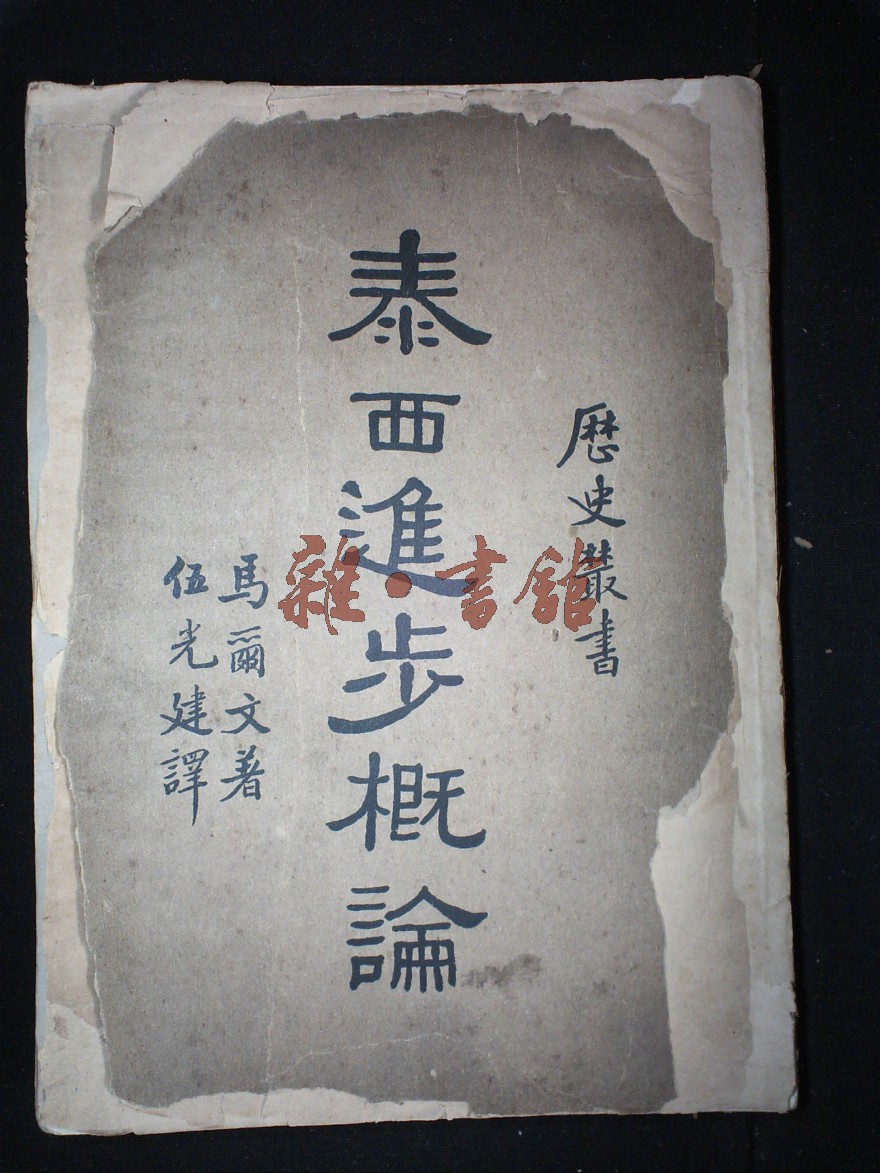 歷史叢書
泰西進步概論
馬爾文著
伍光建譯
雜·書館